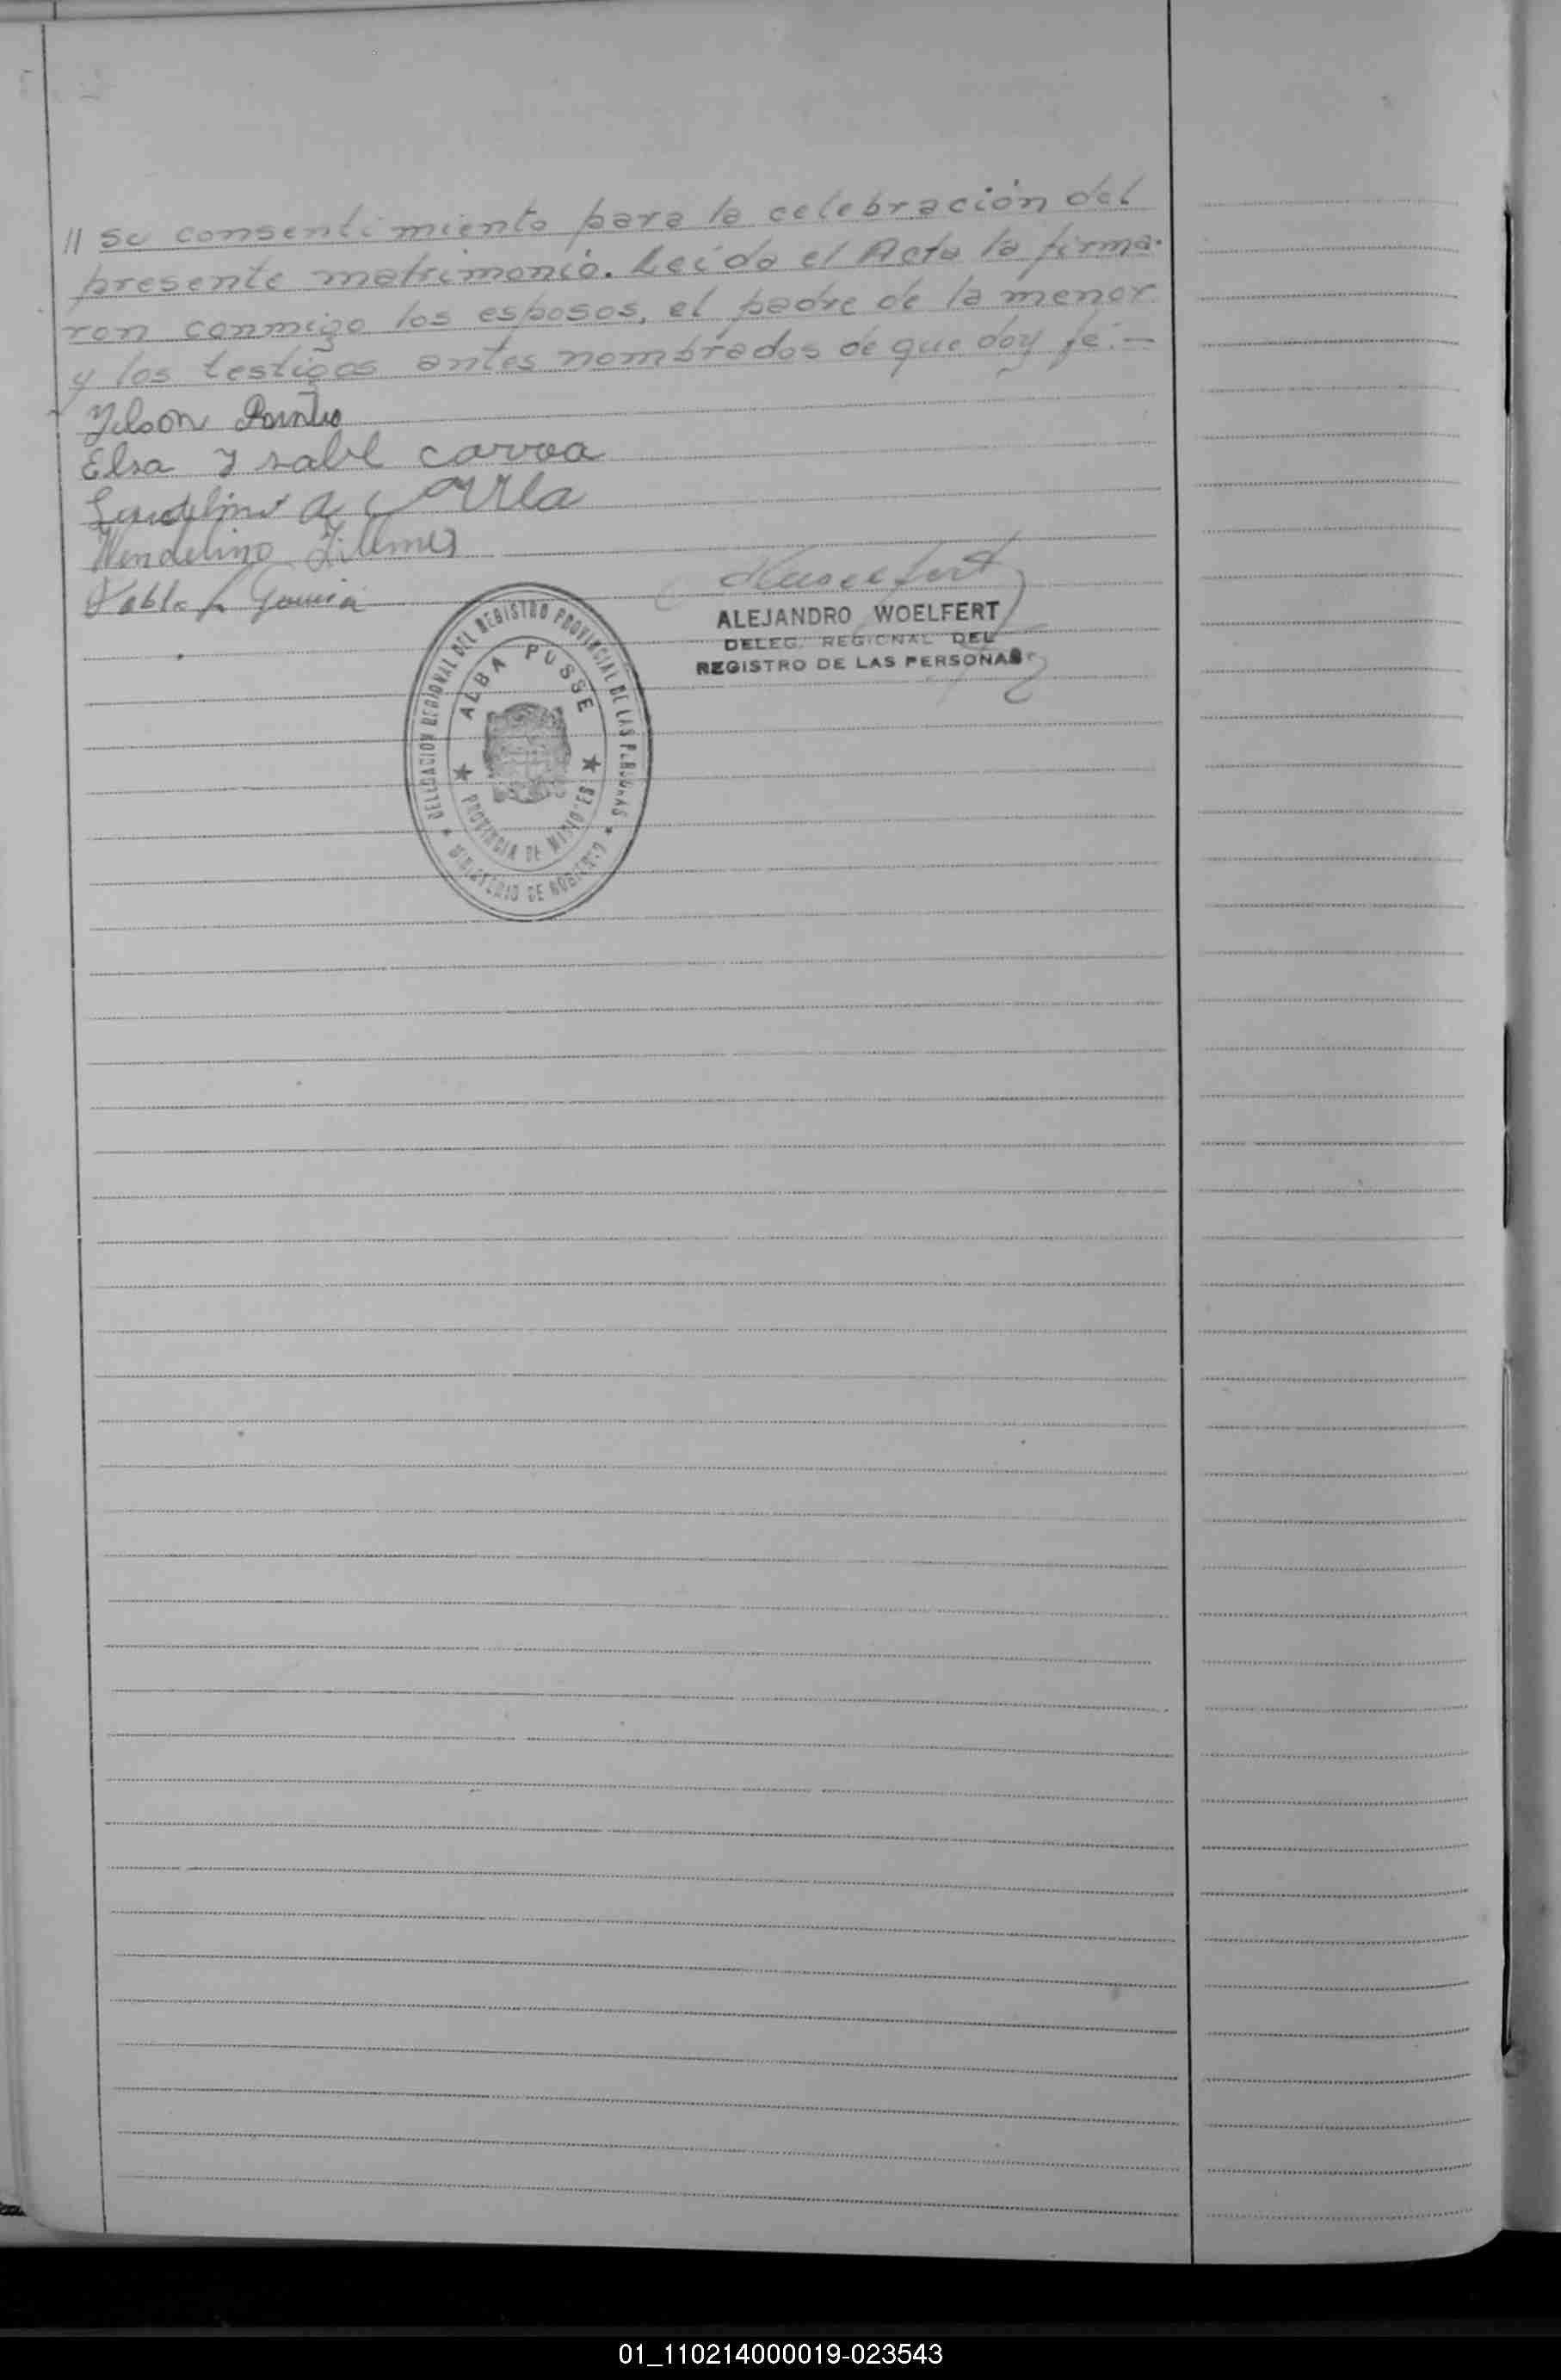 // su consentimiento para la celebración del
presente matrimonio. Leída el Acta la firma-
ron conmigo los esposos, el padre de la menor
y los testigos antes nombrados de que doy fé.—
Elsa Ysabel correa
Wendelino
Pablo
ALEJANDRO WOELFERT
DELEG. REGIONAL DEL
REGISTRO DE LAS PERSONAS
DELEGACION REGIONAL DEL REGISTRO PROVINCIAL DE LAS PERSONAS
ALBA POSSE
PROVINCIA DE MISIONES
MINISTERIO DE GOBIERNO
01_110214000019-023543